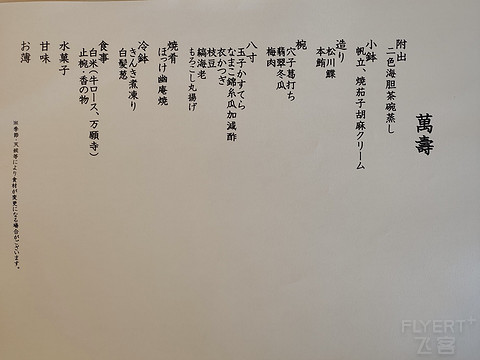 萬壽
附出
二色海胆茶碗蒸し
小鉢
帆立、焼茄子胡麻クリーム
造り
松川鰈
本鮪
椀
穴子葛打ち
翡翠冬瓜
梅肉
八寸
玉子かすてら
なまこ錦糸瓜加減酢
衣かつぎ
枝豆
縞海老
もろこし丸揚げ
焼肴
ほっけ幽庵焼
冷鉢
きんき煮凍り
白髪葱
食事
白米(牛ロース、万願寺)
止椀・香の物
水菓子
甘味
お薄
※季節・天候等により食材が変更になる場合がございます。
FLYERT+
飞客